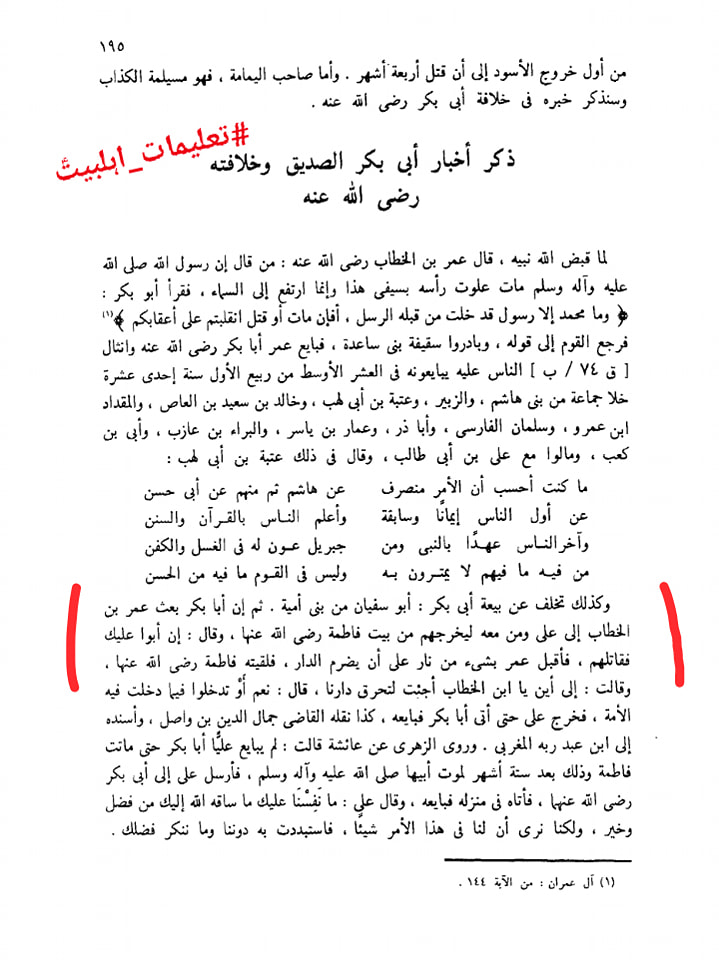 ١٩٥
من أول خروج الأسود إلى أن قتل أربعة أشهر . وأما صاحب اليمامة ، فهو مسيلمة الكذاب
وسنذكر خبره فى خلافة أبى بكر رضى الله عنه .
#تعليمات_اہلبیتؑ
ذكر أخبار أبى بكر الصديق وخلافته
رضى الله عنه
لما قبض الله نبيه ، قال عمر بن الخطاب رضى الله عنه : من قال إن رسول الله صلى الله
عليه وآله وسلم مات علوت رأسه بسيفى هذا وإنما ارتفع إلى السماء ، فقرأ أبو بكر :
﴿ وما محمد إلا رسول قد خلت من قبله الرسل ، أفإن مات أو قتل انقلبتم على أعقابكم ﴾(١)
فرجع القوم إلى قوله ، وبادروا سقيفة بنى ساعدة ، فبايع عمر أبا بكر رضى الله عنه وانثال
[ ق ٧٤ / ب ] الناس عليه يبايعونه فى العشر الأوسط من ربيع الأول سنة إحدى عشرة
خلا جماعة من بنى هاشم ، والزبير ، وعتبة بن أبى لهب ، وخالد بن سعيد بن العاص ، والمقداد
ابن عمرو ، وسلمان الفارسى ، وأبا ذر ، وعمار بن ياسر ، والبراء بن عازب ، وأبى بن
كعب ، ومالوا مع على بن أبى طالب ، وقال فى ذلك عتبة بن أبى لهب :
ما كنت أحسب أن الأمر منصرف عن هاشم ثم منهم عن أبى حسن
عن أول الناس إيمانًا وسابقة وأعلم الناس بالقرآن والسنن
وآخر الناس عهدًا بالنبى ومن جبريل عون له فى الغسل والكفن
من فيه ما فيهم لا يمترون به وليس فى القوم ما فيه من الحسن
وكذلك تخلف عن بيعة أبى بكر : أبو سفيان من بنى أمية . ثم إن أبا بكر بعث عمر بن
الخطاب إلى على ومن معه ليخرجهم من بيت فاطمة رضى الله عنها ، وقال : إن أبوا عليك
فقاتلهم ، فأقبل عمر بشىء من نار على أن يضرم الدار ، فلقيته فاطمة رضى الله عنها ،
وقالت : إلى أين يا ابن الخطاب أجئت لتحرق دارنا ، قال : نعم أوْ تدخلوا فيما دخلت فيه
الأمة ، فخرج على حتى أتى أبا بكر فبايعه ، كذا نقله القاضى جمال الدين بن واصل ، وأسنده
إلى ابن عبد ربه المغربى . وروى الزهرى عن عائشة قالت : لم يبايع عليًّا أبا بكر حتى ماتت
فاطمة وذلك بعد ستة أشهر لموت أبيها صلى الله عليه وآله وسلم ، فأرسل على إلى أبى بكر
رضى الله عنهما ، فأتاه فى منزله فبايعه ، وقال علي : ما نَفِسْنَا عليك ما ساقه الله إليك من فضل
وخير ، ولكنا نرى أن لنا فى هذا الأمر شيئًا ، فاستبددت به دوننا وما ننكر فضلك .
(١) آل عمران : من الآية ١٤٤ .